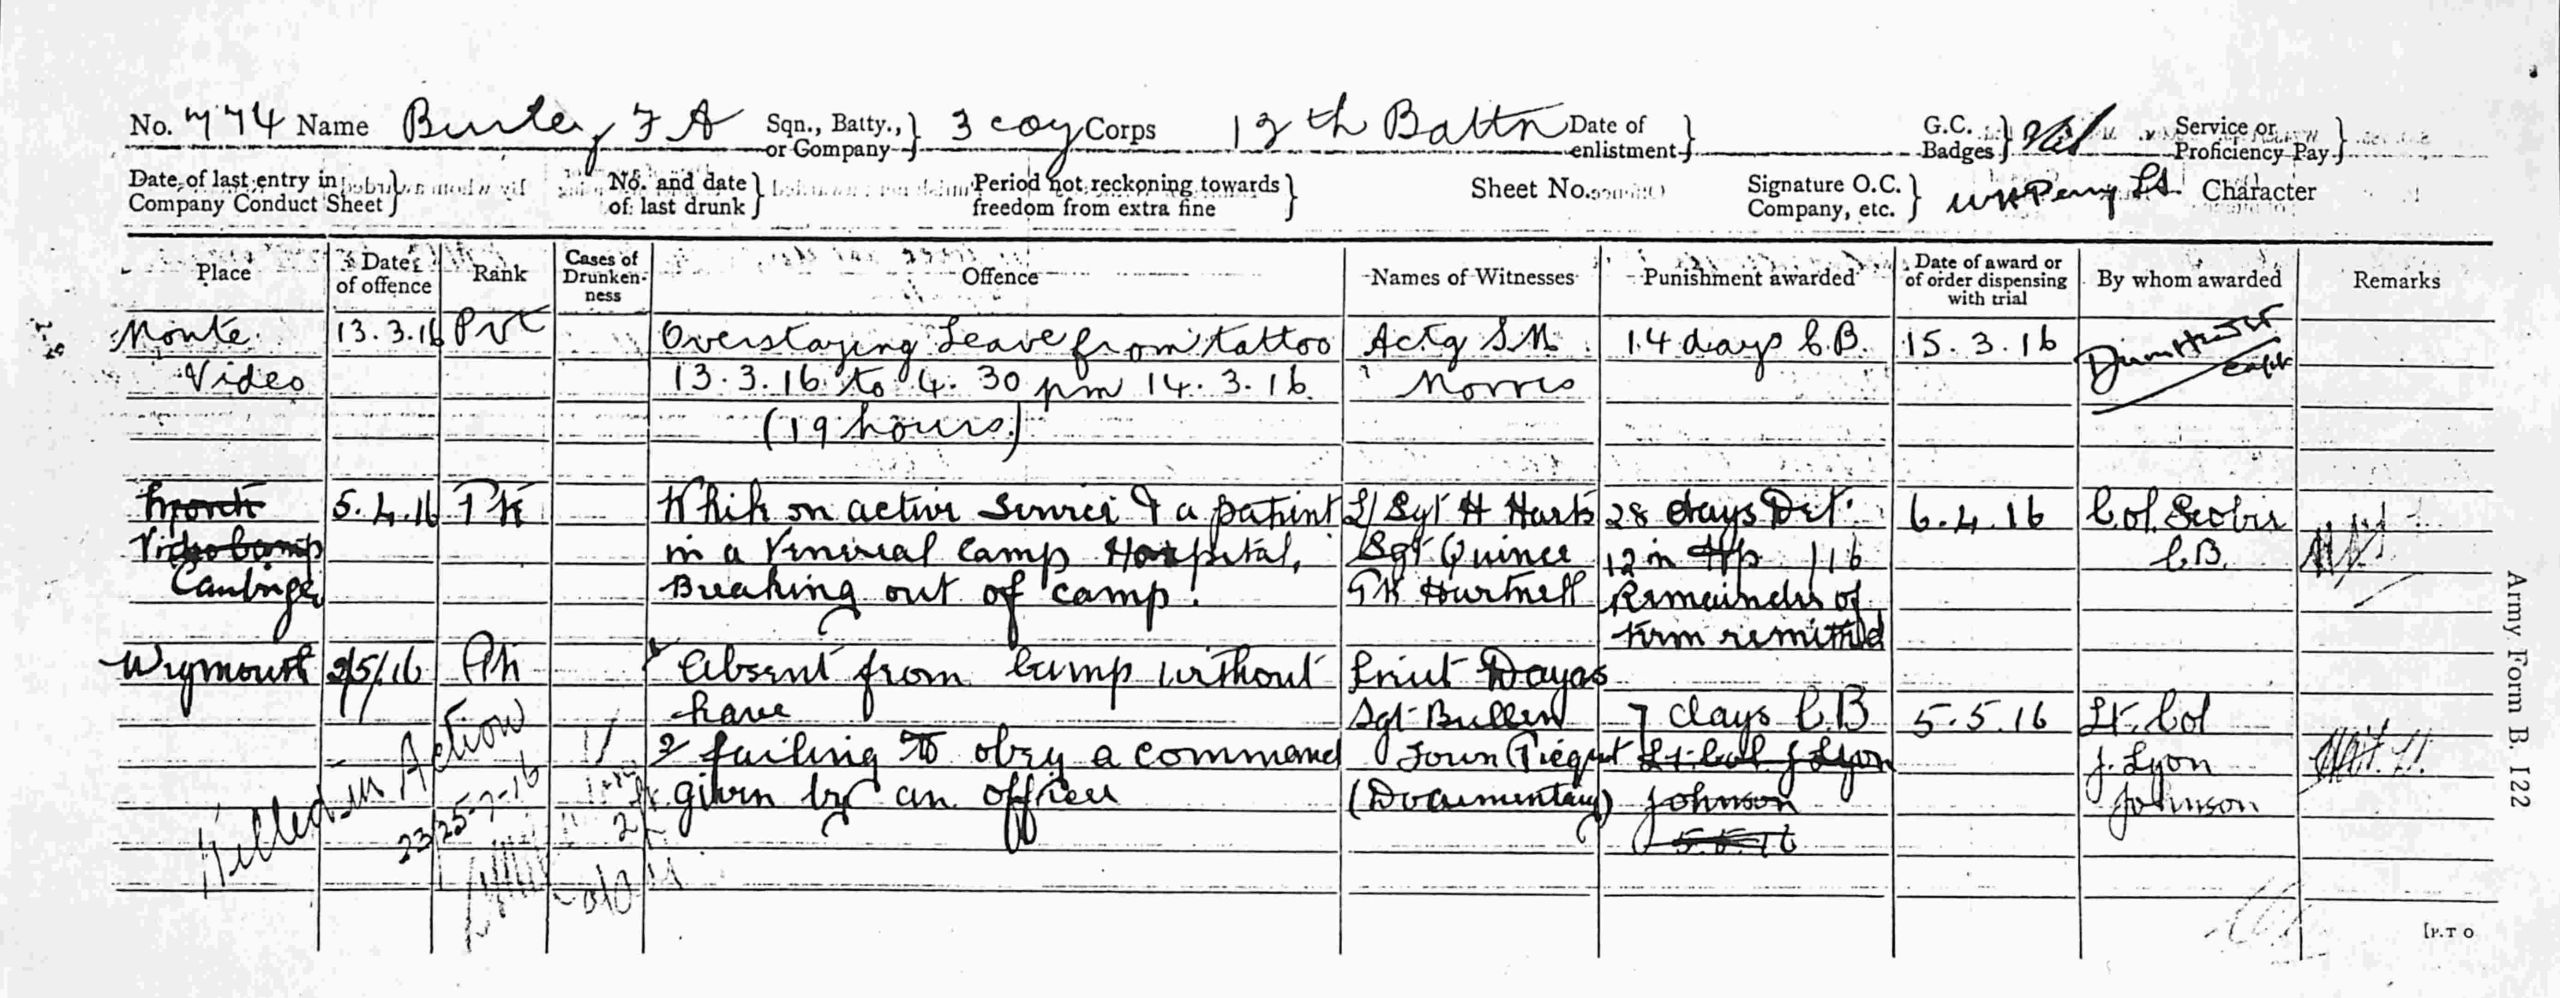 No. 774 Name Burley F A Sqn., Batty., or Company } 3 coy Corps 12th Battn Date of enlistment } G.C. Badges } Nil Service or Proficiency Pay }
Date of last entry in Company Conduct Sheet } No. and date of last drunk } Period not reckoning towards freedom from extra fine } Sheet No. Signature O.C. Company, etc. } Perry Lt. Character
Place Date of offence Rank Cases of Drunken-ness Offence Names of Witnesses Punishment awarded Date of award or of order dispensing with trial By whom awarded Remarks
Monte 13.3.16 Pvt Overstaying Leave from tattoo Actg S.M. 14 days C.B. 15.3.16
Video 13.3.16 to 4.30 pm 14.3.16 Morris Capt
(19 hours)
5.4.16 Pte While on active service & a patient L/Sgt H 28 days Det. 6.4.16 Col. Scobie
Video Camp in a Venereal Camp Hospital, Sgt Quince 12 in Hp 116 C.B.
Breaking out of camp. Pte Hartnell Remainder of
term remitted
Weymouth 2/5/16 Pte Absent from Camp without Lieut
leave Sgt Bullen 7 days C.B 5.5.16 Lt. Col
2 failing to obey a command Town Picquet Lt. Col J Lyon J. Lyon
given by an officer (Documentary) Johnson Johnson
5.5.16
Killed in Action
23/25-7-16
Army Form B. 122
[P.T O